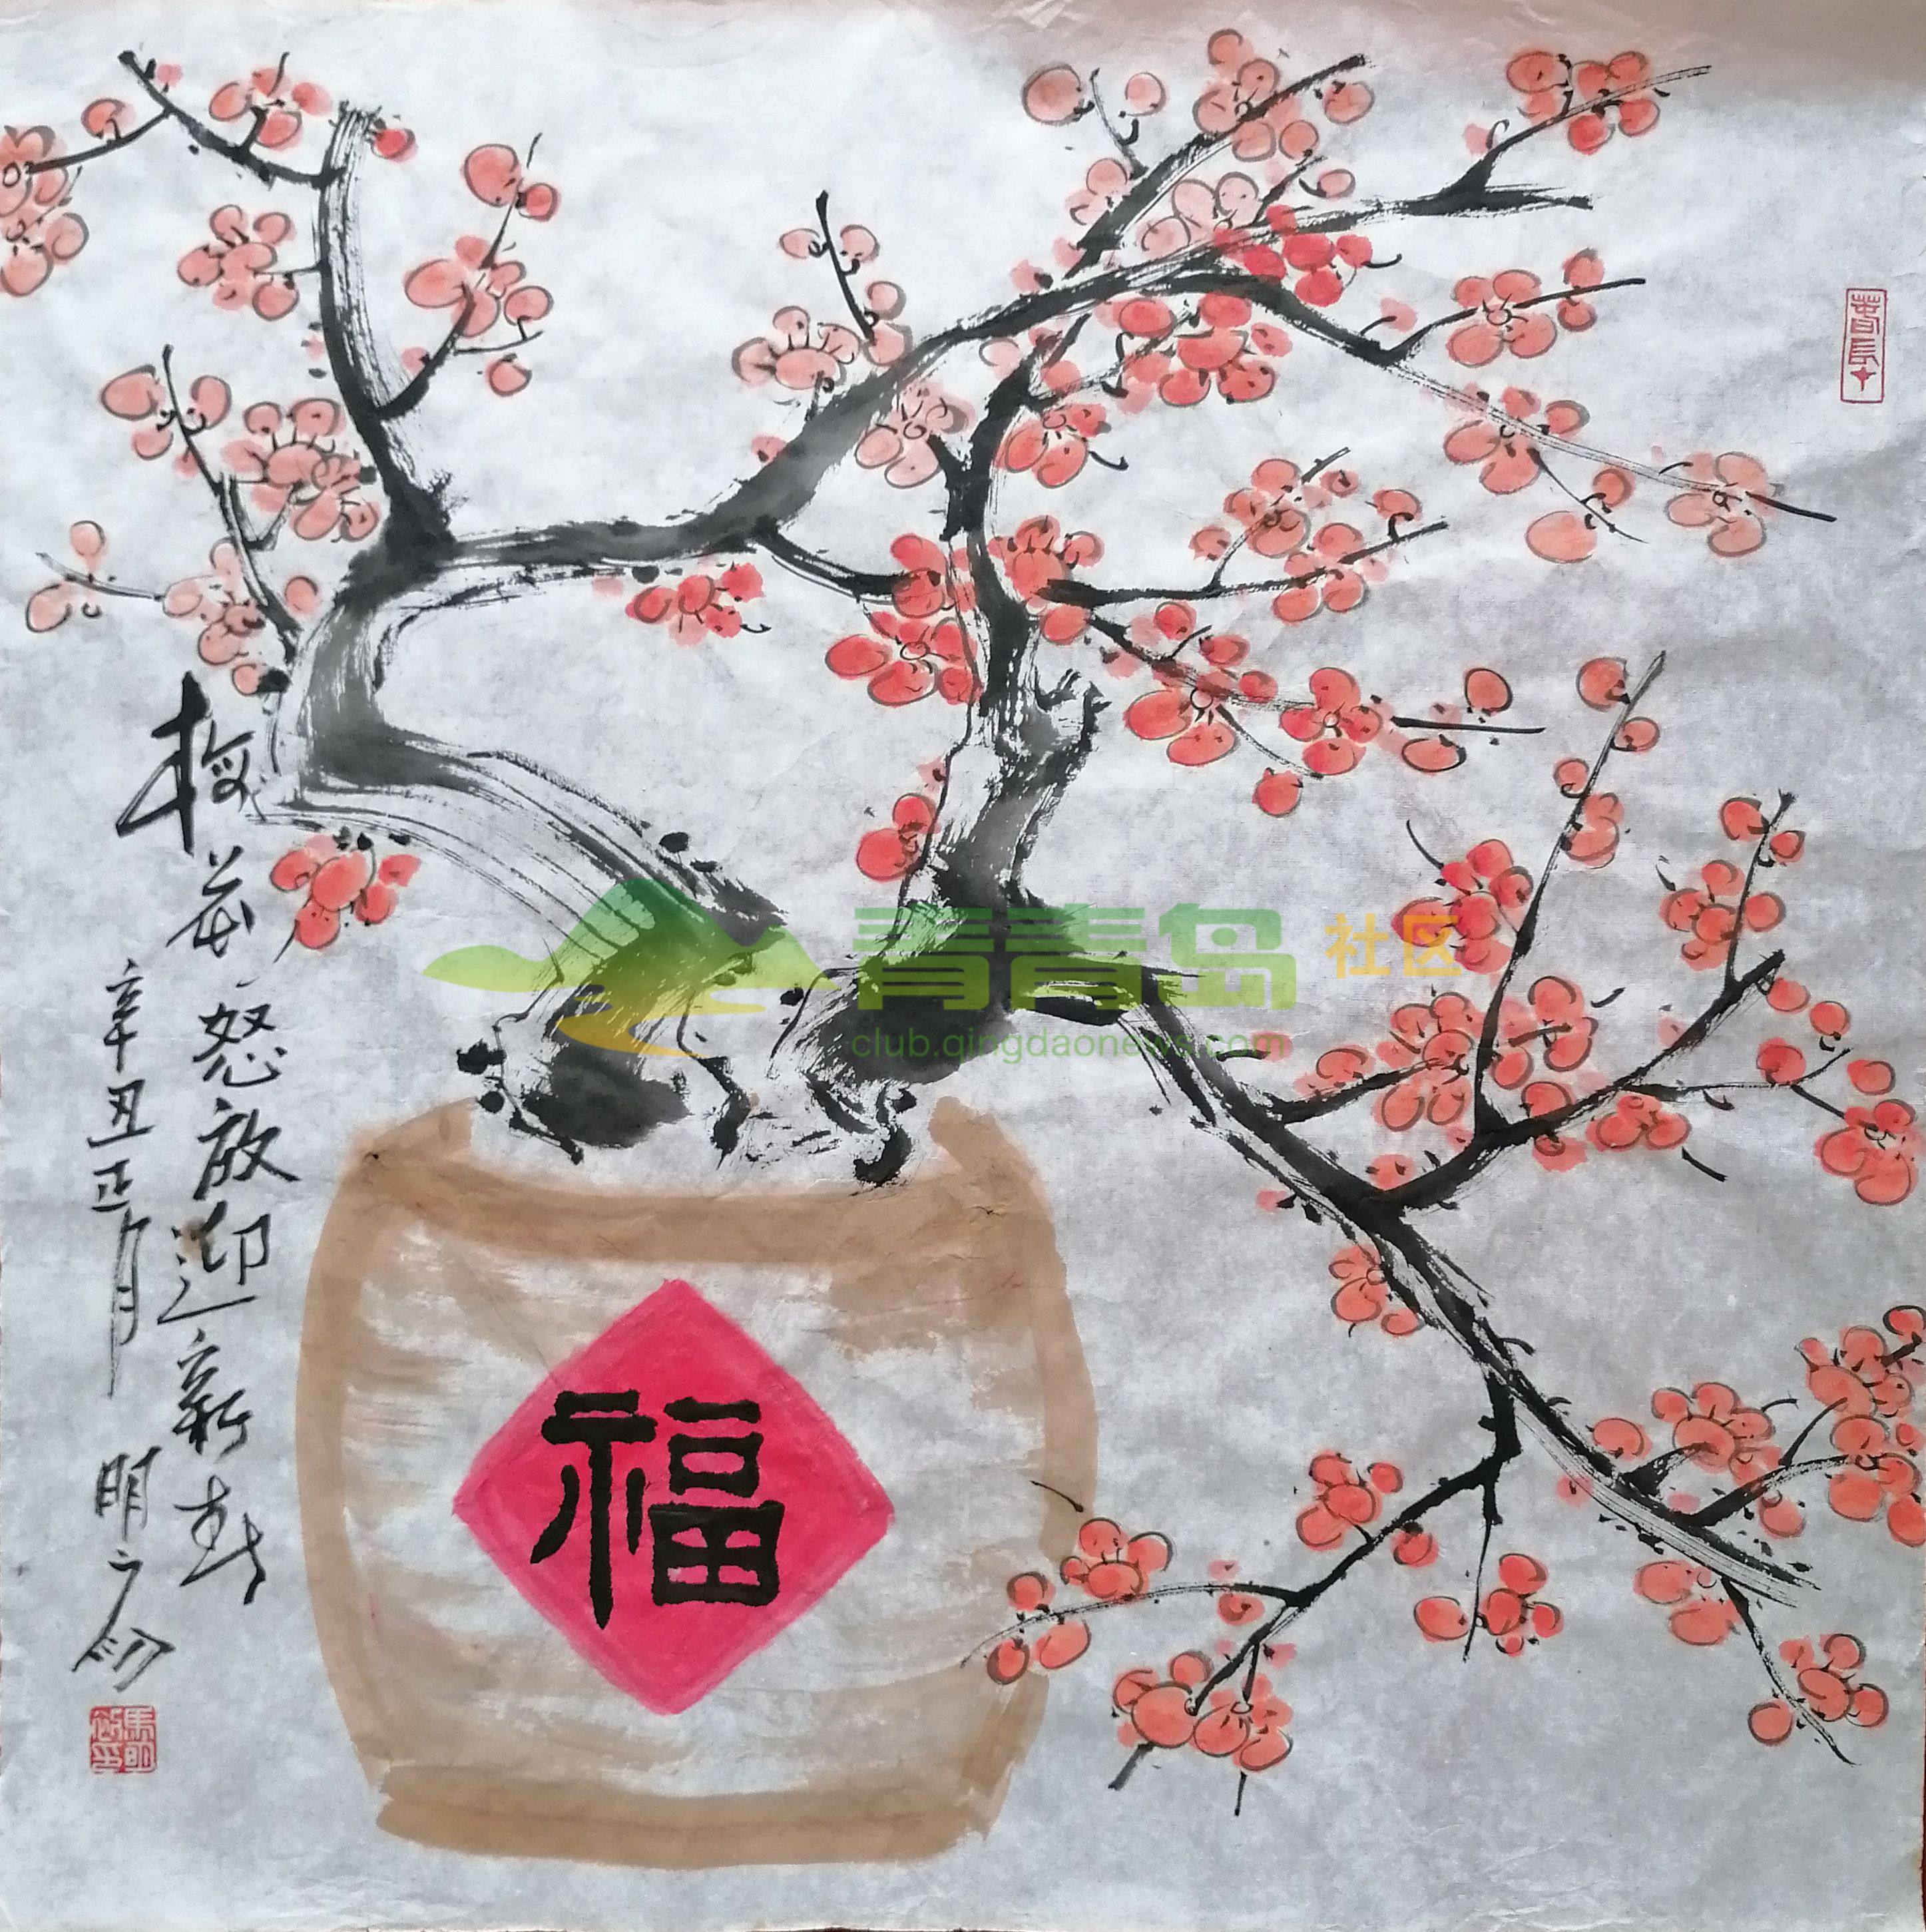 梅花怒放迎新春
辛丑正月 明
青青岛 社区
club.qingdaonews.com
福